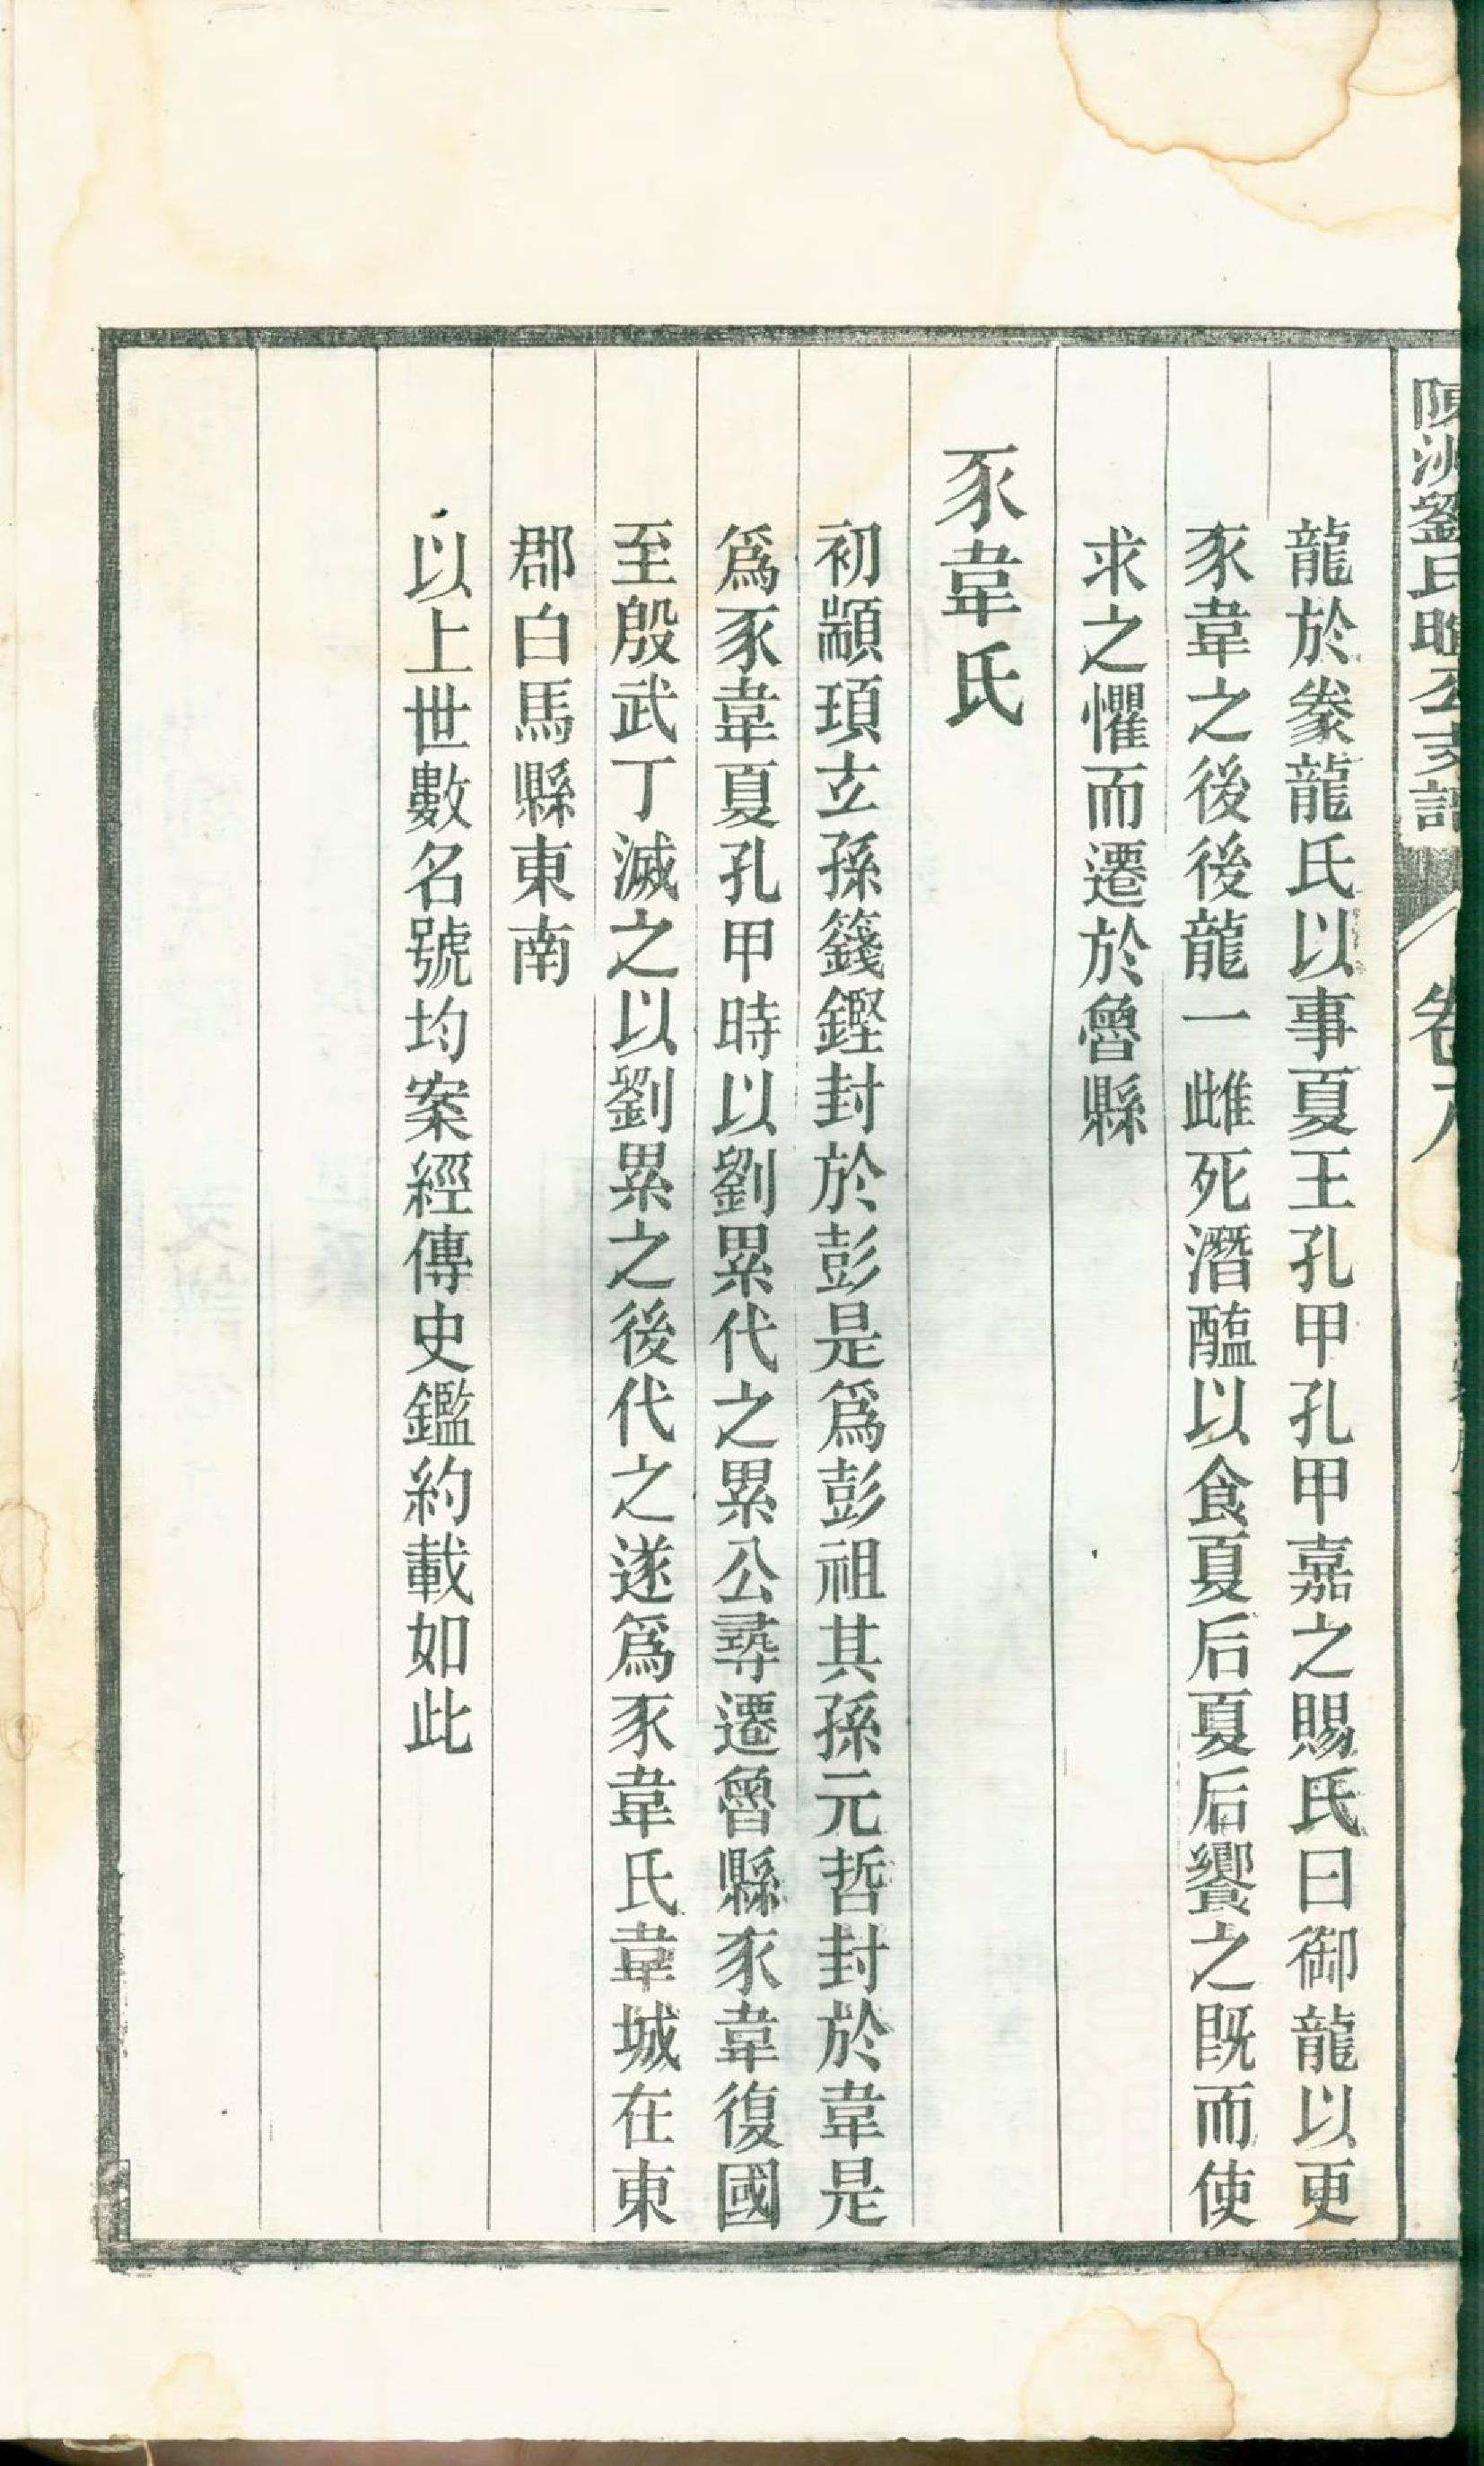 龍於豢龍氏以事夏王孔甲孔甲嘉之賜氏曰御龍以更
豕韋之後後龍一雌死潛醢以食夏后夏后饗之既而使
求之懼而遷於魯縣
豕韋氏
初顓頊玄孫籛鏗封於彭是爲彭祖其孫元哲封於韋是
爲豕韋夏孔甲時以劉累代之累公尋遷魯縣豕韋復國
至殷武丁滅之以劉累之後代之遂爲豕韋氏韋城在東
郡白馬縣東南
以上世數名號均案經傳史鑑約載如此